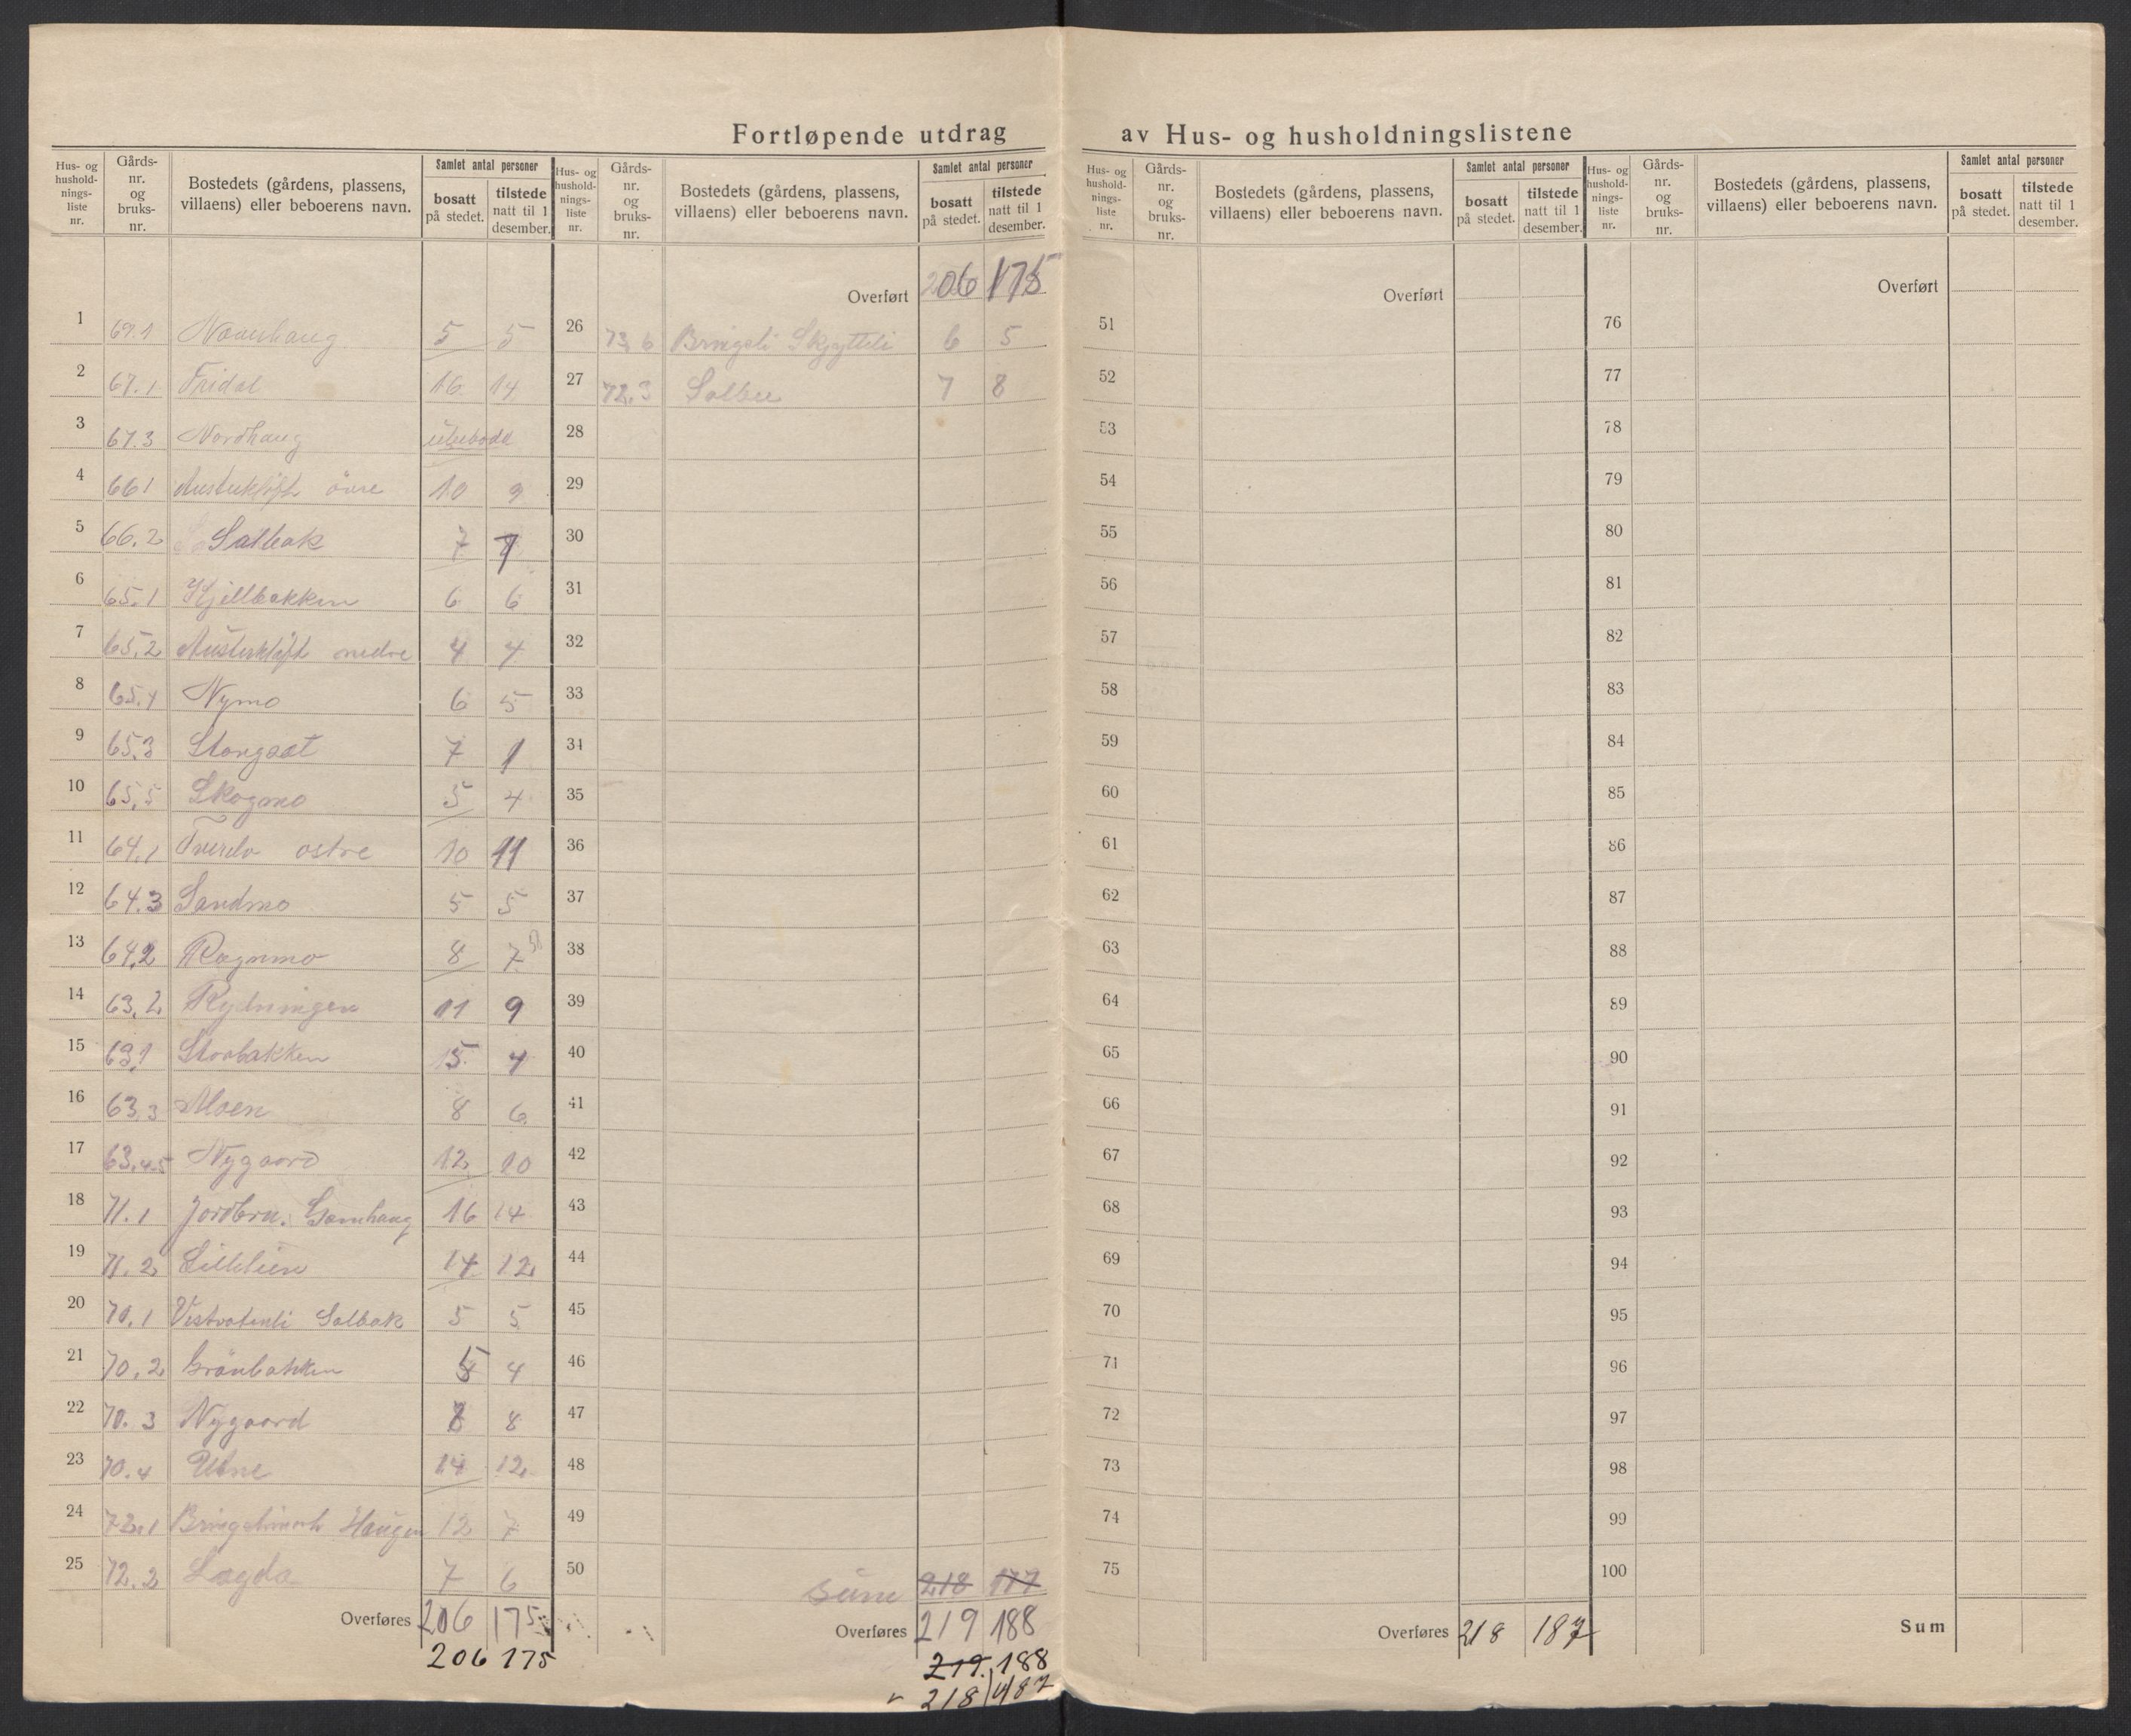 Fortløpende utdrag av Hus- og husholdningslistene
Hus- og hushold-nings-liste nr. Gårds-nr. og bruks-nr. Bostedets (gårdens, plassens, villaens) eller beboerens navn. Samlet antal personer bosatt på stedet. tilstede natt til 1 desember.
1 69.1 5 5
2 67.1 Fridal 16 14
3 67.3 Nordhaug ubebodd
4 66 1 Austerkløft övre 10 9
5 66.2 Solbak 7 7
6 65.1 Kjellbakken 6 6
7 65.2 Austerkløft nedre 4 4
8 65.4 Nymo 6 5
9 65.3 7 1
10 65.5 Skogmo 5 4
11 64.1 Tverelv ostre 10 11
12 64.3 Sandmo 5 5
13 64.2 Rognmo 8 7
14 63.2 Rydningen 11 9
15 63.1 Storbakken 5 4
16 63.3 Moen 8 6
17 63.4.5 Nygaard 12 10
18 71.1 Jordbru. 16 14
19 71.2 Lillelien 14 12
20 70.1 Vestvatenli Solbak 5 5
21 70.2 Grönbakken 5 4
22 70.3 Nygaard 8
23 70.4 Utne 14 12
24 72.1 Haugen 12 7
25 72.2 Lagda 7 6
Overføres 206 175
206 175
Hus- og hushold-nings-liste nr. Gårds-nr. og bruks-nr. Bostedets (gårdens, plassens, villaens) eller beboerens navn. Samlet antal personer bosatt på stedet. tilstede natt til 1 desember.
Overført 206 175
26 73.6 Bringsli Skytteli 6 5
27 72.3 Solbu 7 8
28
29
30
31
32
33
34
35
36
37
38
39
40
41
42
43
44
45
46
47
48
49
50
Sum 218 177
Overføres 219 188
219. 188
218 187
Hus- og hushold-nings-liste nr. Gårds-nr. og bruks-nr. Bostedets (gårdens, plassens, villaens) eller beboerens navn. Samlet antal personer bosatt på stedet. tilstede natt til 1 desember.
Overført
51
52
53
54
55
56
57
58
59
60
61
62
63
64
65
66
67
68
69
70
71
72
73
74
75
Overføres 218 187
Hus- og hushold-nings-liste nr. Gårds-nr. og bruks-nr. Bostedets (gårdens, plassens, villaens) eller beboerens navn. Samlet antal personer bosatt på stedet. tilstede natt til 1 desember.
Overført
76
77
78
79
80
81
82
83
84
85
86
87
88
89
90
91
92
93
94
95
96
97
98
99
100
Sum